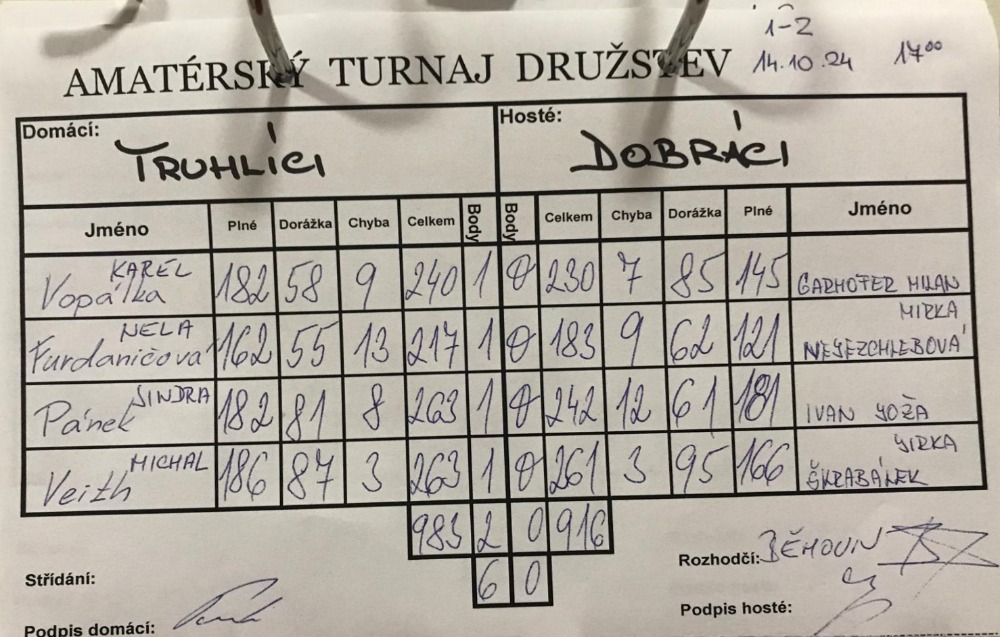 1-2
AMATÉRSKÝ TURNAJ DRUŽSTEV 14.10.24 17⁰⁰
Domácí: TRUHLÍCI Hosté: DOBRÁCI
Jméno Plné Dorážka Chyba Celkem Body Body Celkem Chyba Dorážka Plné Jméno
KAREL Vopálka 182 58 9 240 1 0 230 7 85 145 GARHOFER MILAN
NELA Furdaničová 162 55 13 217 1 0 183 9 62 121 MIRKA NEJEZCHLEBOVÁ
JINDRA Pánek 182 81 8 263 1 0 242 12 61 181 IVAN JOŽA
MICHAL Veith 186 87 3 263 1 0 261 3 95 166 JIRKA ŠKRABÁNEK
983 2 0 916
6 0
Střídání: Rozhodčí: BĚHOUN
Podpis domácí: Podpis hosté: